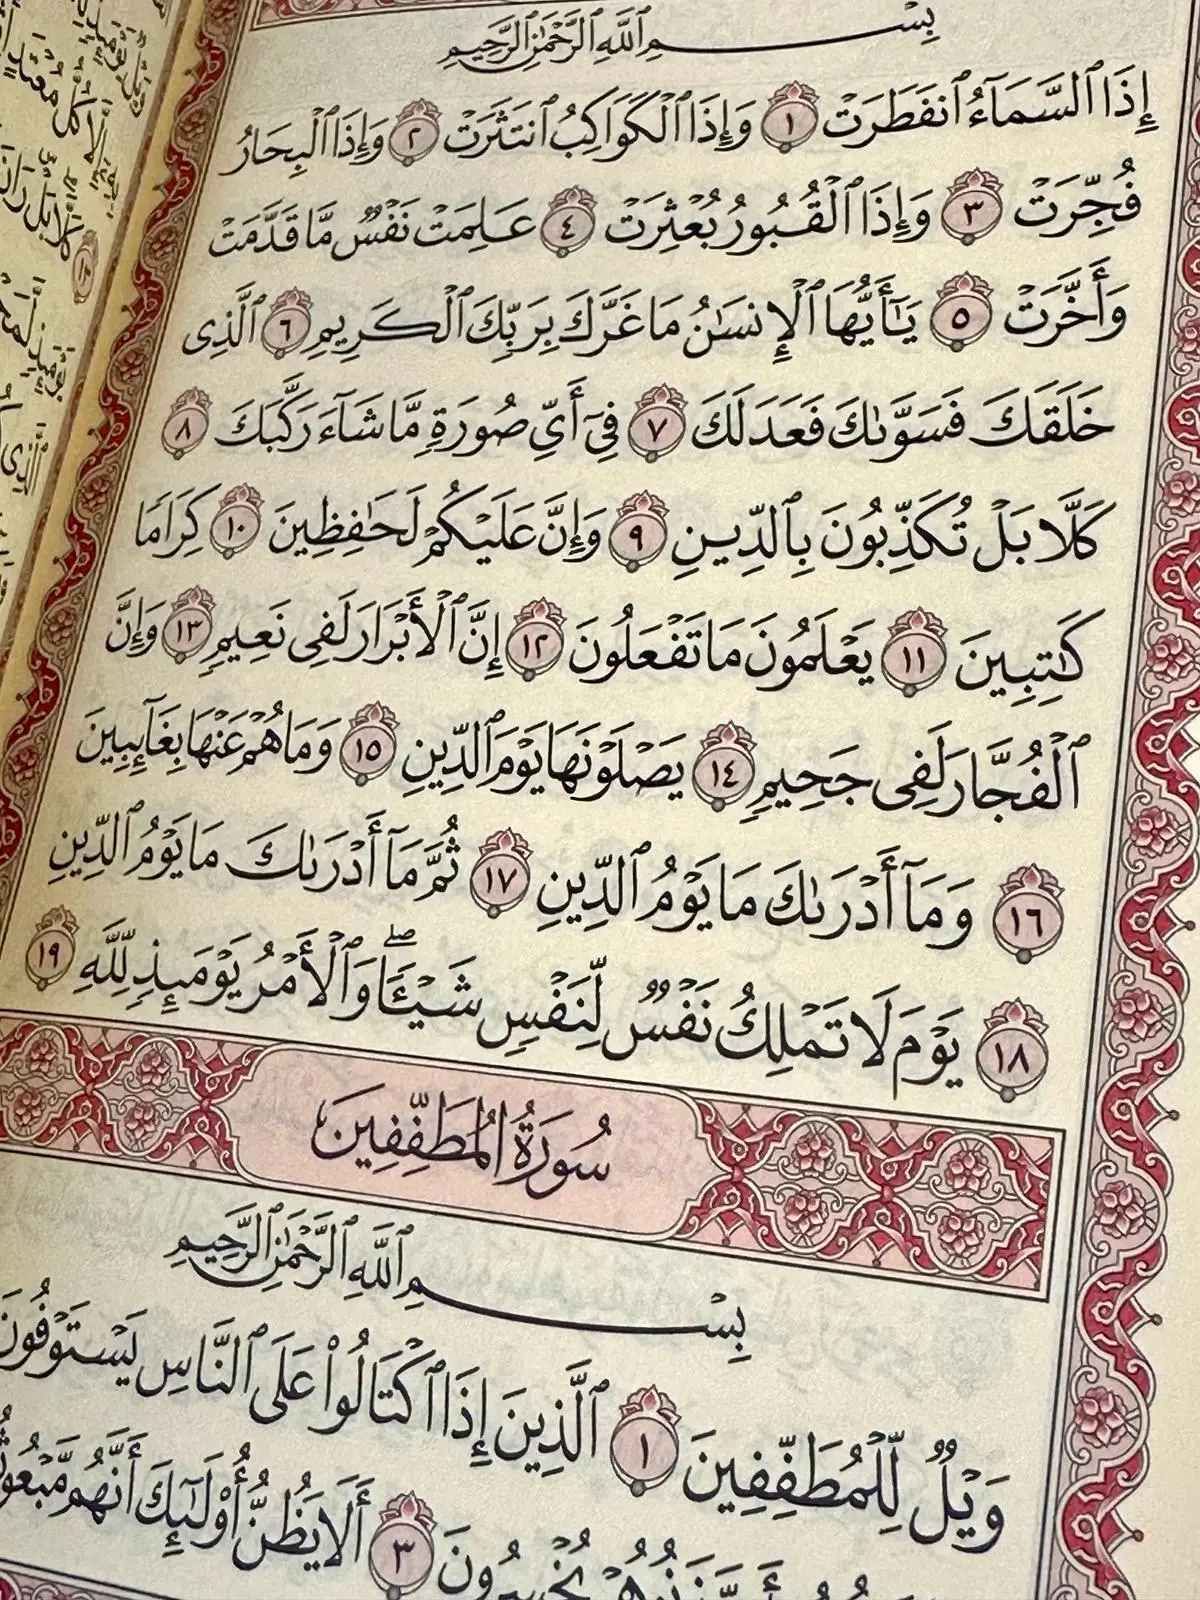 بِسْمِ ٱللَّهِ ٱلرَّحْمَٰنِ ٱلرَّحِيمِ
إِذَا ٱلسَّمَآءُ ٱنفَطَرَتْ ١ وَإِذَا ٱلْكَوَاكِبُ ٱنتَثَرَتْ ٢ وَإِذَا ٱلْبِحَارُ
فُجِّرَتْ ٣ وَإِذَا ٱلْقُبُورُ بُعْثِرَتْ ٤ عَلِمَتْ نَفْسٌ مَّا قَدَّمَتْ
وَأَخَّرَتْ ٥ يَٰٓأَيُّهَا ٱلْإِنسَٰنُ مَا غَرَّكَ بِرَبِّكَ ٱلْكَرِيمِ ٦ ٱلَّذِى
خَلَقَكَ فَسَوَّىٰكَ فَعَدَلَكَ ٧ فِىٓ أَىِّ صُورَةٍ مَّا شَآءَ رَكَّبَكَ ٨
كَلَّا بَلْ تُكَذِّبُونَ بِٱلدِّينِ ٩ وَإِنَّ عَلَيْكُمْ لَحَٰفِظِينَ ١٠ كِرَامًا
كَٰتِبِينَ ١١ يَعْلَمُونَ مَا تَفْعَلُونَ ١٢ إِنَّ ٱلْأَبْرَارَ لَفِى نَعِيمٍ ١٣ وَإِنَّ
ٱلْفُجَّارَ لَفِى جَحِيمٍ ١٤ يَصْلَوْنَهَا يَوْمَ ٱلدِّينِ ١٥ وَمَا هُمْ عَنْهَا بِغَآئِبِينَ
١٦ وَمَآ أَدْرَىٰكَ مَا يَوْمُ ٱلدِّينِ ١٧ ثُمَّ مَآ أَدْرَىٰكَ مَا يَوْمُ ٱلدِّينِ
١٨ يَوْمَ لَا تَمْلِكُ نَفْسٌ لِّنَفْسٍ شَيْـًٔا ۖ وَٱلْأَمْرُ يَوْمَئِذٍ لِّلَّهِ ١٩
سُورَةُ المُطَفِّفِينَ
بِسْمِ ٱللَّهِ ٱلرَّحْمَٰنِ ٱلرَّحِيمِ
وَيْلٌ لِّلْمُطَفِّفِينَ ١ ٱلَّذِينَ إِذَا ٱكْتَالُوا۟ عَلَى ٱلنَّاسِ يَسْتَوْفُونَ
يُخْسِرُونَ ٣ أَلَا يَظُنُّ أُو۟لَٰٓئِكَ أَنَّهُم